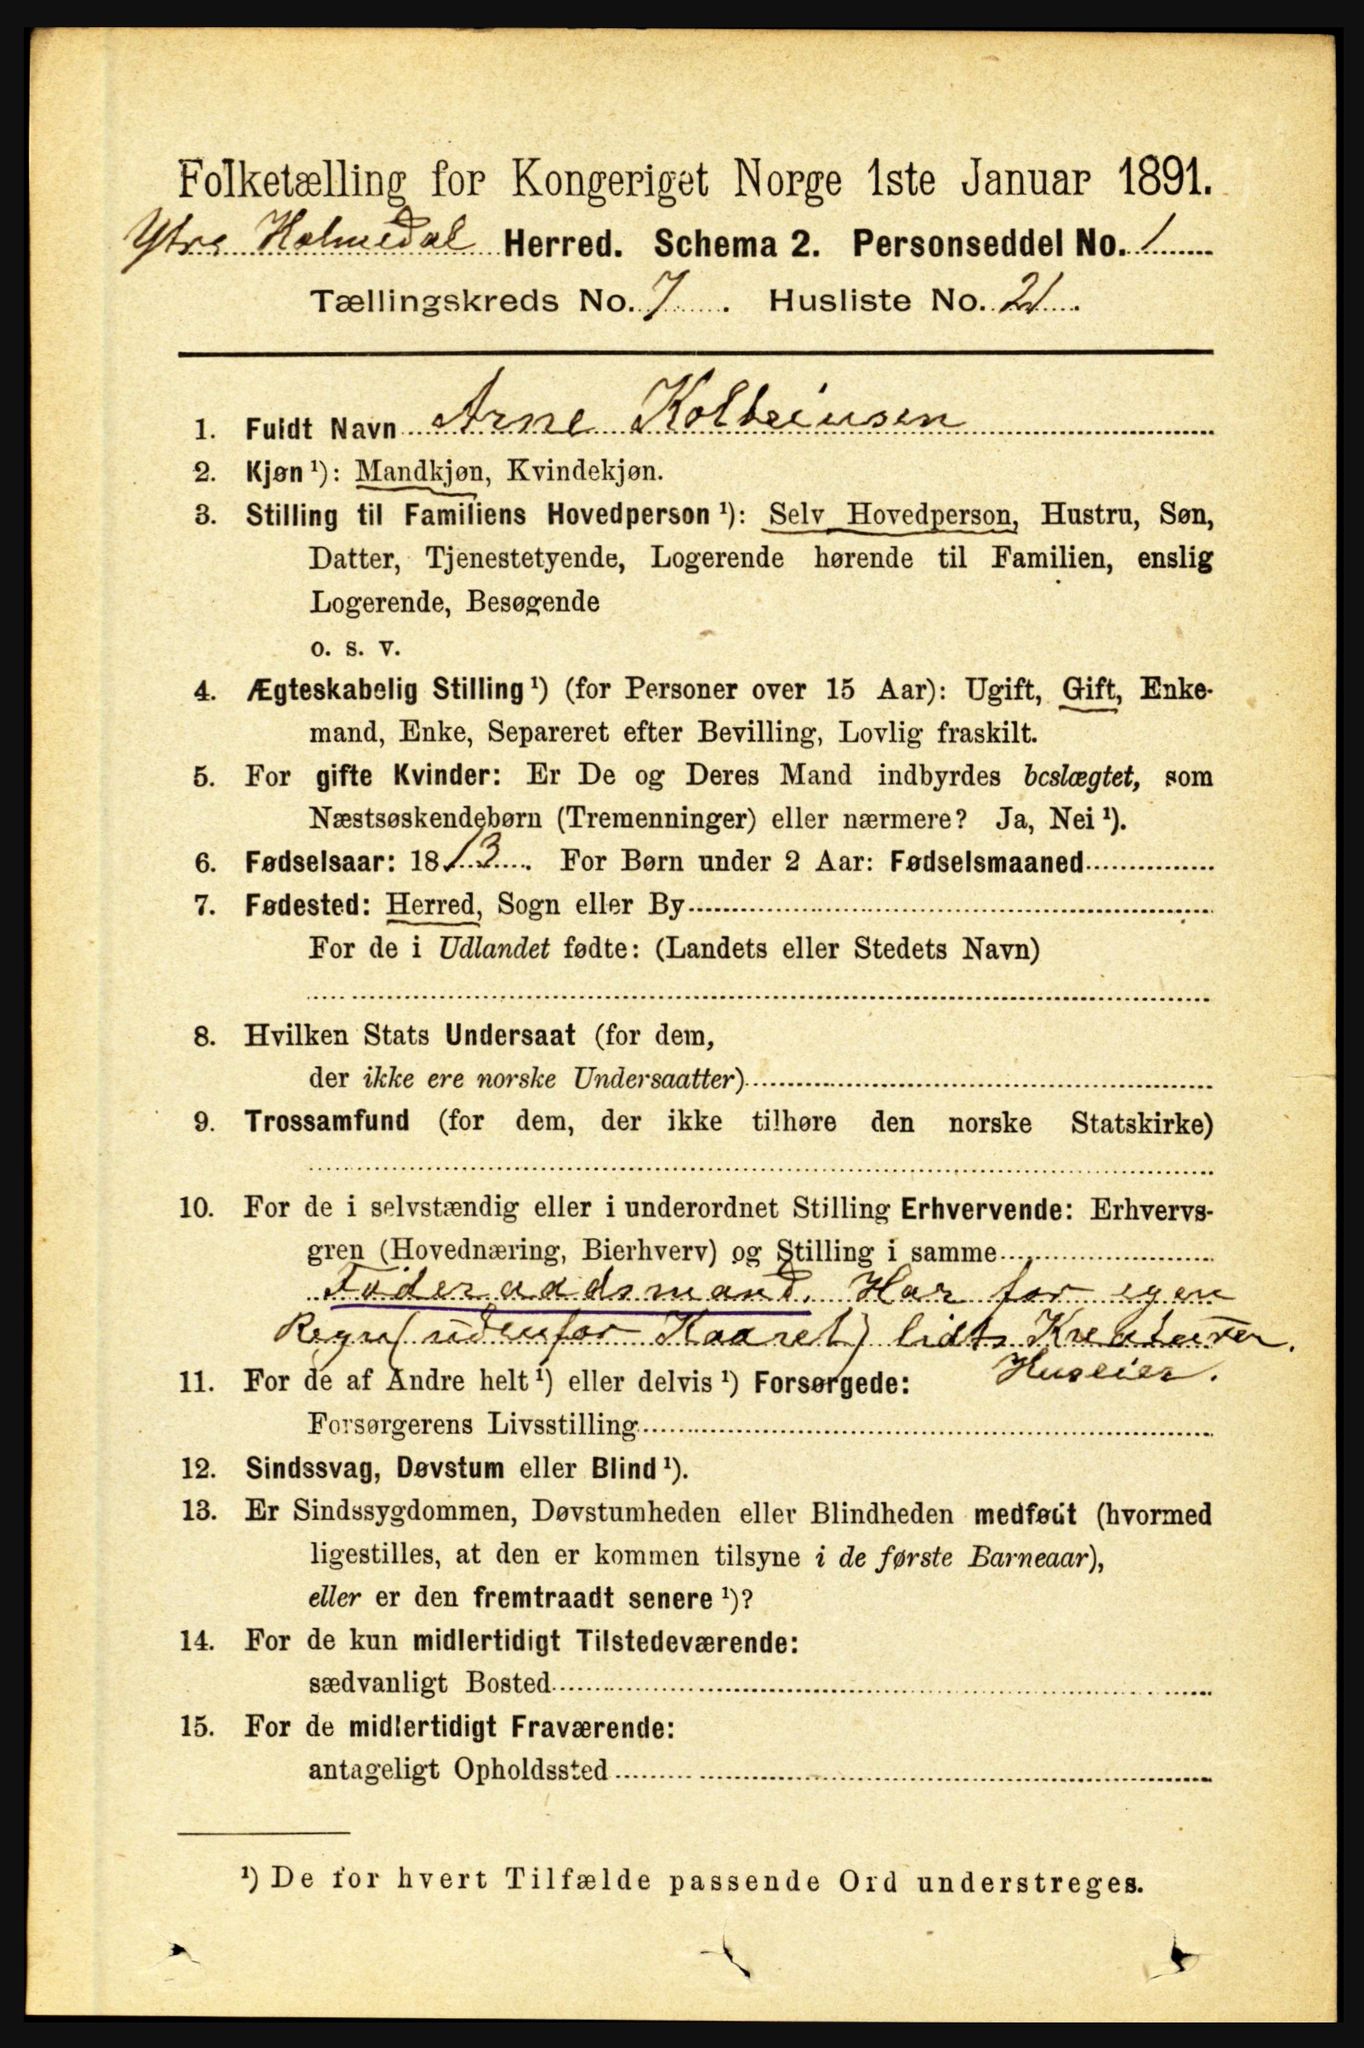 Folketælling for Kongeriget Norge 1ste Januar 1891.
Ytre Holmedal Herred. Schema 2. Personseddel No. 1
Tællingskreds No. 7. Husliste No. 21.
1. Fuldt Navn Arne Kolbeinsen
2. Kjøn ¹): Mandkjøn, Kvindekjøn.
3. Stilling til Familiens Hovedperson ¹): Selv Hovedperson, Hustru, Søn,
Datter, Tjenestetyende, Logerende hørende til Familien, enslig
Logerende, Besøgende
o. s. v.
4. Ægteskabelig Stilling ¹) (for Personer over 15 Aar): Ugift, Gift, Enke-
mand, Enke, Separeret efter Bevilling, Lovlig fraskilt.
5. For gifte Kvinder: Er De og Deres Mand indbyrdes beslægtet, som
Næstsøskendebørn (Tremenninger) eller nærmere? Ja, Nei ¹).
6. Fødselsaar: 1813. For Børn under 2 Aar: Fødselsmaaned
7. Fødested: Herred, Sogn eller By
For de i Udlandet fødte: (Landets eller Stedets Navn)
8. Hvilken Stats Undersaat (for dem,
der ikke ere norske Undersaatter)
9. Trossamfund (for dem, der ikke tilhøre den norske Statskirke)
10. For de i selvstændig eller i underordnet Stilling Erhvervende: Erhvervs-
gren (Hovednæring, Bierhverv) og Stilling i samme
Føderaadsmand. Har for egen
Regn (udenfor Kaaret) lidt Kreaturer.
Huseier.
11. For de af Andre helt ¹) eller delvis ¹) Forsørgede:
Forsørgerens Livsstilling
12. Sindssvag, Døvstum eller Blind ¹).
13. Er Sindssygdommen, Døvstumheden eller Blindheden medfødt (hvormed
ligestilles, at den er kommen tilsyne i de første Barneaar),
eller er den fremtraadt senere ¹)?
14. For de kun midlertidigt Tilstedeværende:
sædvanligt Bosted
15. For de midlertidigt Fraværende:
antageligt Opholdssted
¹) De for hvert Tilfælde passende Ord understreges.